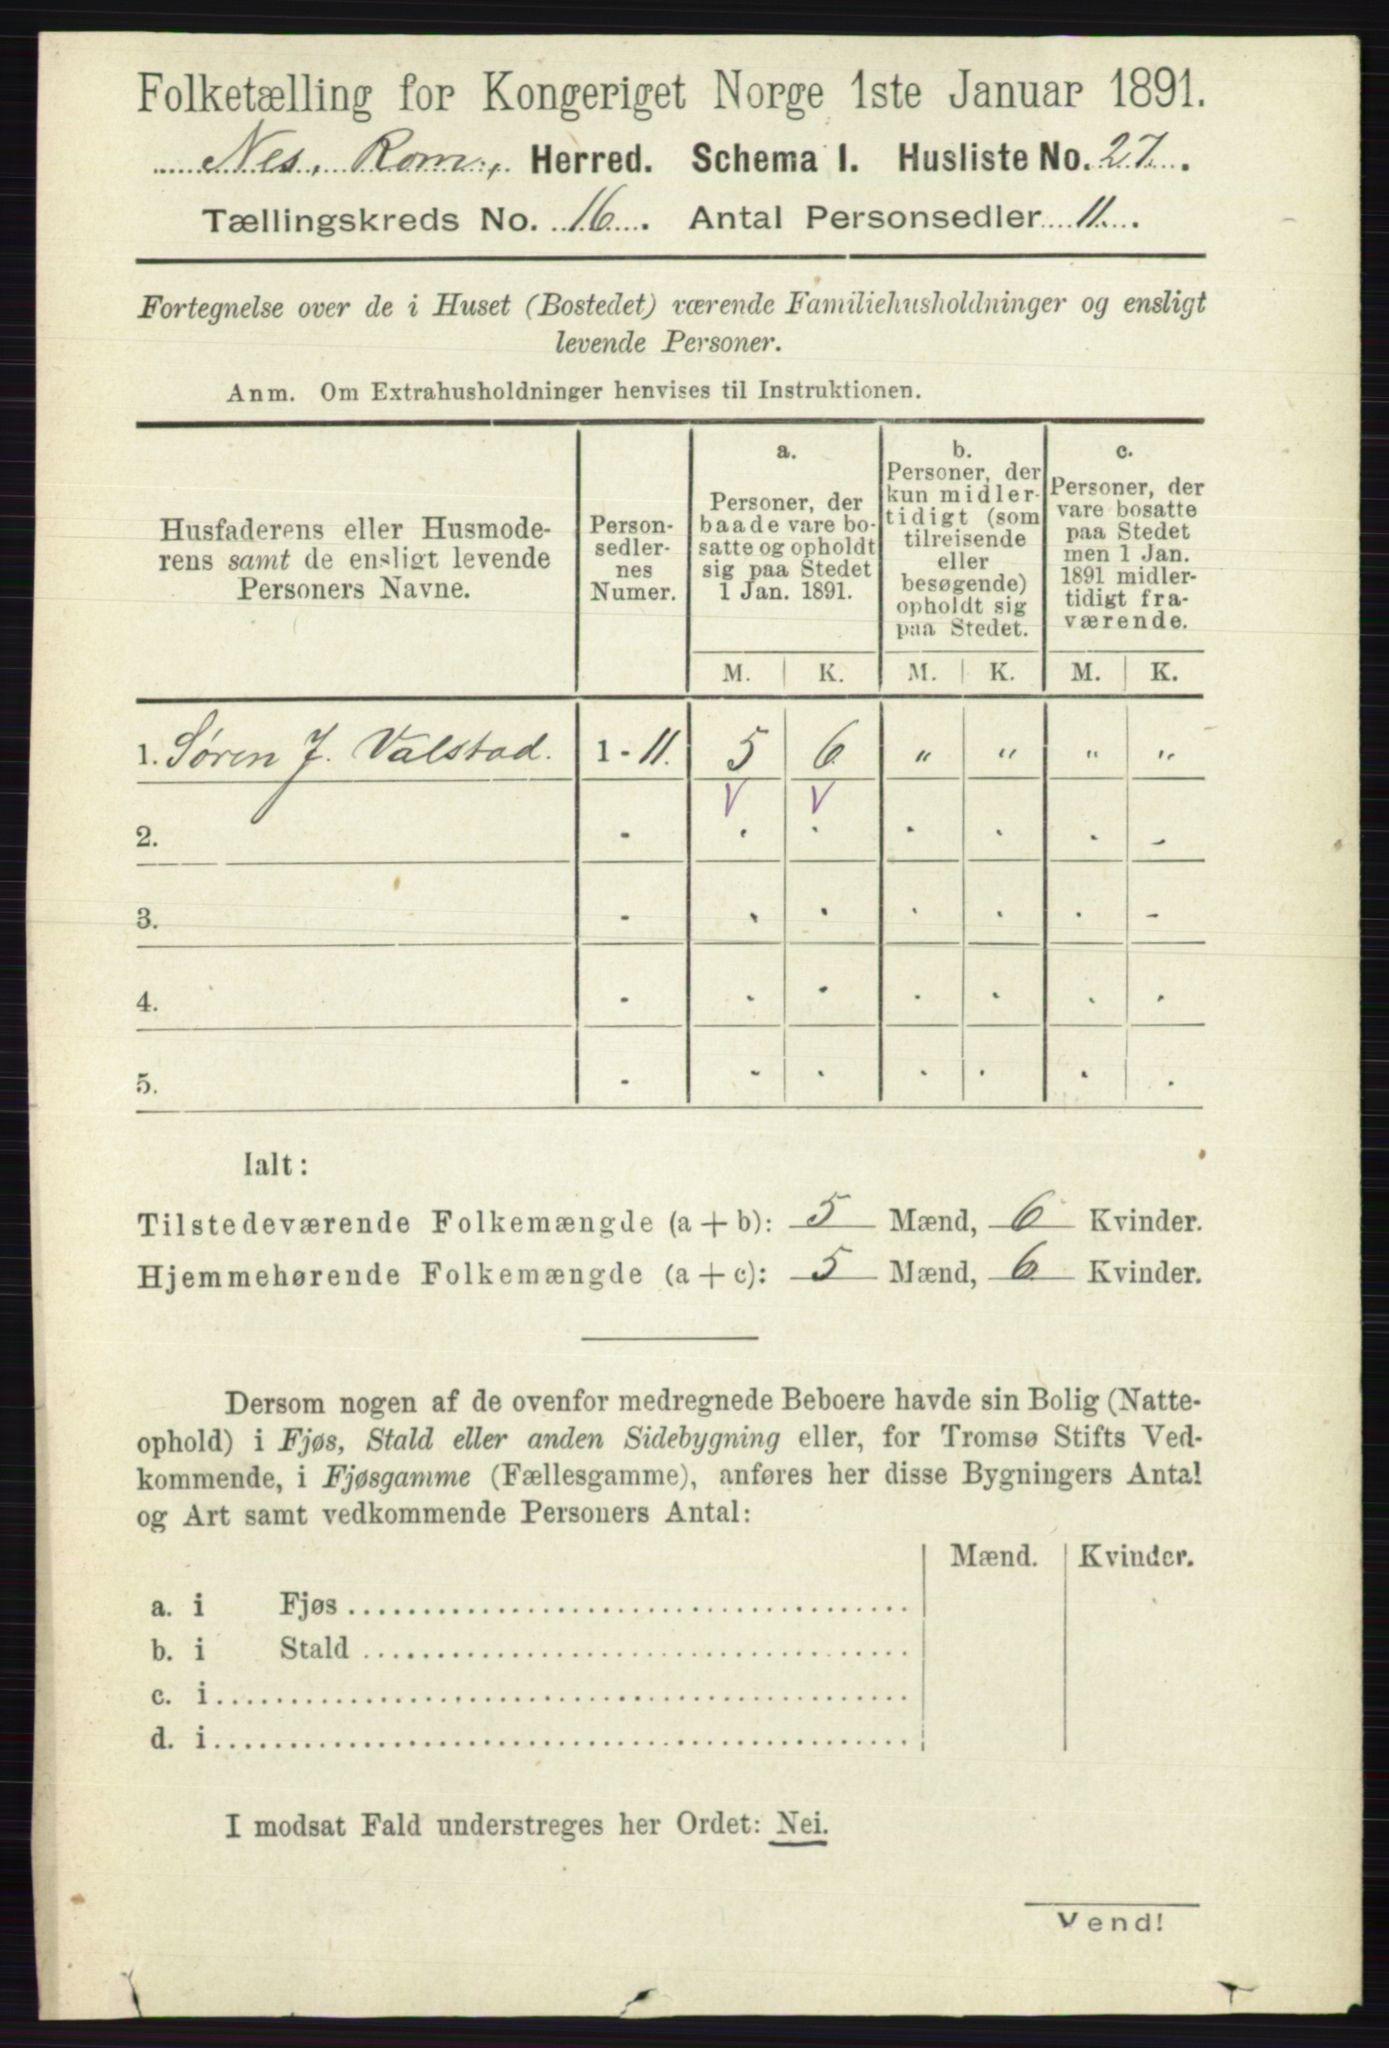 Folketælling for Kongeriget Norge 1ste Januar 1891.
Nes, Rom., Herred. Schema I. Husliste No. 27.
Tællingskreds No. 16. Antal Personsedler 11.
Fortegnelse over de i Huset (Bostedet) værende Familiehusholdninger og ensligt
levende Personer.
Anm. Om Extrahusholdninger henvises til Instruktionen.
Husfaderens eller Husmode-
rens samt de ensligt levende
Personers Navne.
Person-
sedler-
nes
Numer.
a.
Personer, der
baade vare bo-
satte og opholdt
sig paa Stedet
1 Jan. 1891.
b.
Personer, der
kun midler-
tidigt (som
tilreisende
eller
besøgende)
opholdt sig
paa Stedet.
c.
Personer, der
vare bosatte
paa Stedet
men 1 Jan.
1891 midler-
tidigt fra-
værende.
M. K. M. K. M. K.
1. Søren J. Valstad. 1 - 11. 5 6 " " " "
V V
2. - . . . . . -
3. - . . . . . -
4. - . . . . . .
5. - . . . . . .
Ialt:
Tilstedeværende Folkemængde (a + b): 5 Mænd, 6 Kvinder.
Hjemmehørende Folkemængde (a + c): 5 Mænd, 6 Kvinder.
Dersom nogen af de ovenfor medregnede Beboere havde sin Bolig (Natte-
ophold) i Fjøs, Stald eller anden Sidebygning eller, for Tromsø Stifts Ved-
kommende, i Fjøsgamme (Fællesgamme), anføres her disse Bygningers Antal
og Art samt vedkommende Personers Antal:
Mænd. Kvinder.
a. i Fjøs
b. i Stald
c. i
d. i
I modsat Fald understreges her Ordet: Nei.
Vend!